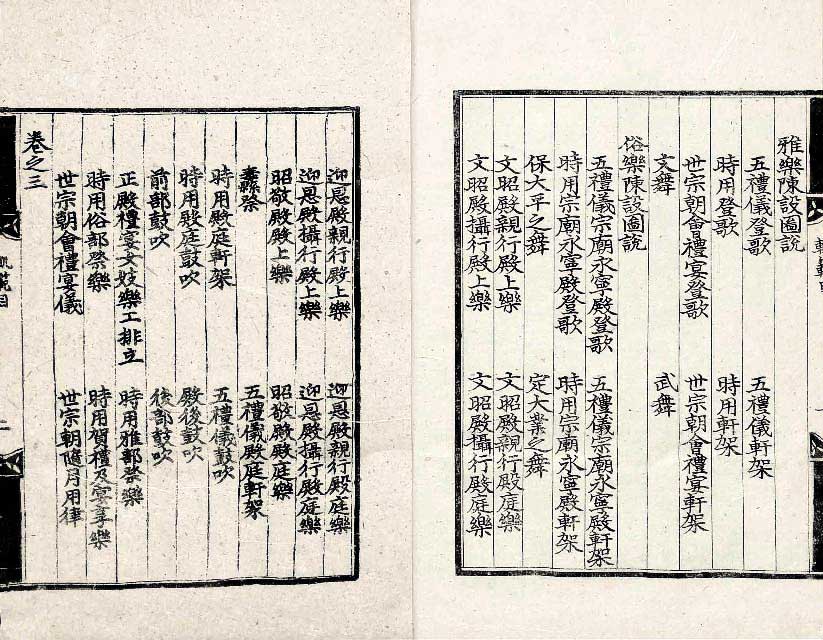 雅樂陳設圖說
五禮儀登歌 五禮儀軒架
時用登歌 時用軒架
世宗朝會禮宴登歌 世宗朝會禮宴軒架
文舞 武舞
俗樂陳設圖說
五禮儀宗廟永寧殿登歌 五禮儀宗廟永寧殿軒架
時用宗廟永寧殿登歌 時用宗廟永寧殿軒架
保大平之舞 定大業之舞
文昭殿親行殿上樂 文昭殿親行殿庭樂
文昭殿攝行殿上樂 文昭殿攝行殿庭樂
延恩殿親行殿上樂 延恩殿親行殿庭樂
延恩殿攝行殿上樂 延恩殿攝行殿庭樂
昭敬殿殿上樂 昭敬殿殿庭樂
纛祭 五禮儀殿庭軒架
時用殿庭軒架 五禮儀鼓吹
時用殿庭鼓吹 殿後鼓吹
前部鼓吹 後部鼓吹
正殿禮宴女妓樂工排立 時用雅部祭樂
時用俗部祭樂 時用賀禮及宴享樂
世宗朝會禮宴儀 世宗朝隨月用律
卷之三